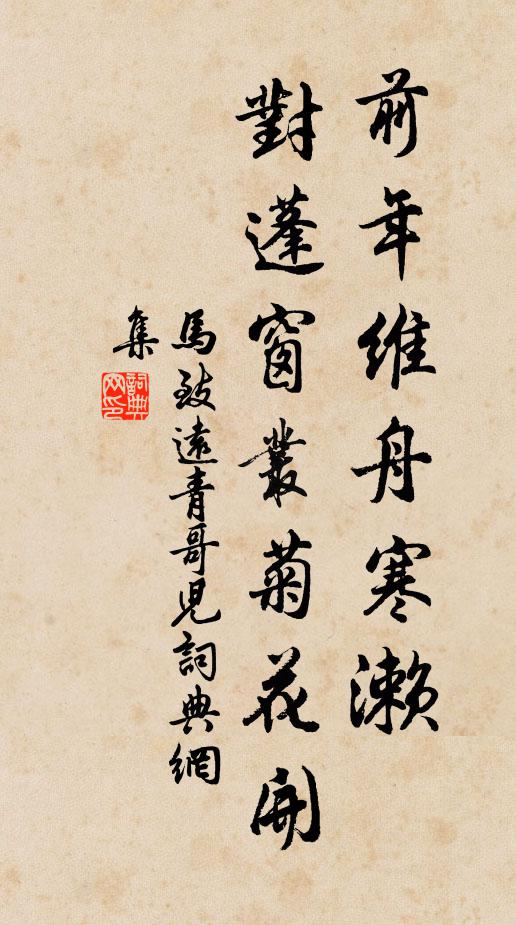 前年維舟寒瀨
對蓬窗叢菊花開
馬致遠青哥兒詞典網
集
詞典網印